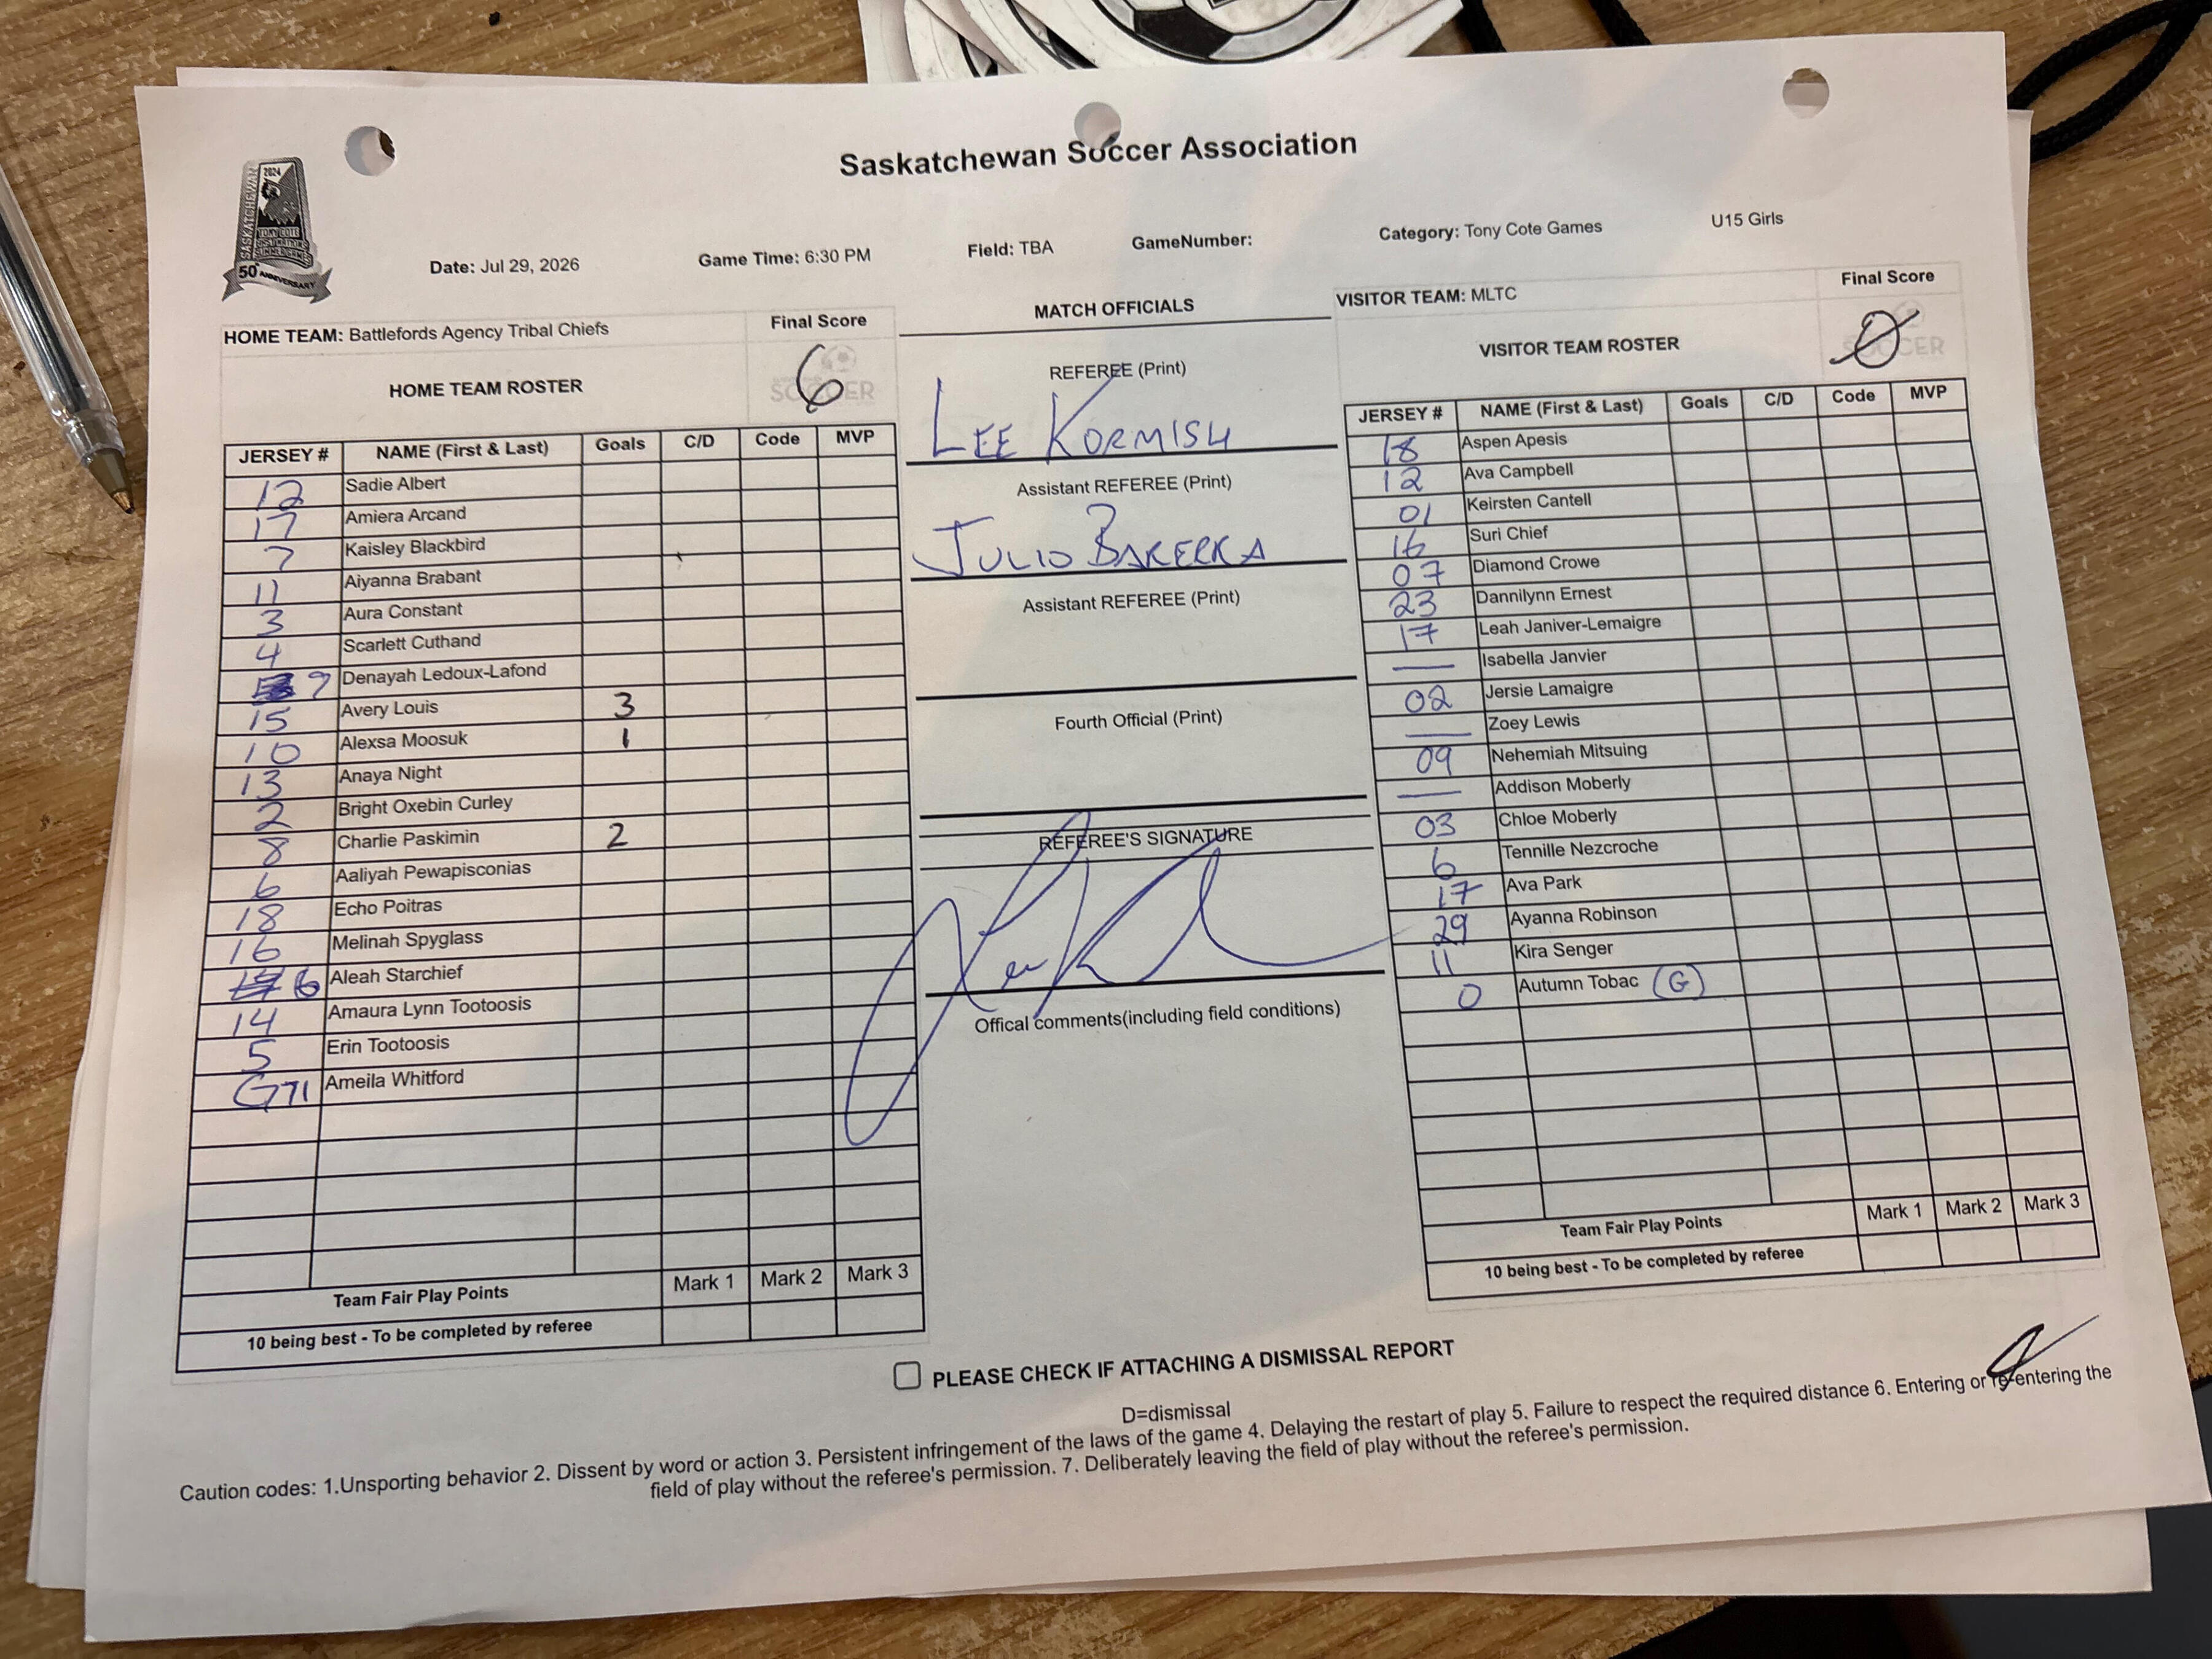 Saskatchewan Soccer Association
2024
SASKATCHEWAN
TONY COTE
FIRST NATIONS
SUMMER GAMES
50th ANNIVERSARY
Date: Jul 29, 2026 Game Time: 6:30 PM Field: TBA GameNumber: Category: Tony Cote Games U15 Girls
HOME TEAM: Battlefords Agency Tribal Chiefs Final Score
6
HOME TEAM ROSTER
JERSEY # NAME (First & Last) Goals C/D Code MVP
12 Sadie Albert
17 Amiera Arcand
7 Kaisley Blackbird
11 Aiyanna Brabant
3 Aura Constant
4 Scarlett Cuthand
9 Denayah Ledoux-Lafond
15 Avery Louis 3
10 Alexsa Moosuk 1
13 Anaya Night
2 Bright Oxebin Curley
8 Charlie Paskimin 2
6 Aaliyah Pewapisconias
18 Echo Poitras
16 Melinah Spyglass
6 Aleah Starchief
14 Amaura Lynn Tootoosis
5 Erin Tootoosis
G71 Ameila Whitford
Team Fair Play Points Mark 1 Mark 2 Mark 3
10 being best - To be completed by referee
MATCH OFFICIALS
REFEREE (Print)
LEE KORMISH
Assistant REFEREE (Print)
JULIO BARERRA
Assistant REFEREE (Print)
Fourth Official (Print)
REFEREE'S SIGNATURE
Offical comments(including field conditions)
VISITOR TEAM: MLTC Final Score
0
SOCCER
VISITOR TEAM ROSTER
JERSEY # NAME (First & Last) Goals C/D Code MVP
18 Aspen Apesis
12 Ava Campbell
01 Keirsten Cantell
16 Suri Chief
07 Diamond Crowe
23 Dannilynn Ernest
17 Leah Janiver-Lemaigre
— Isabella Janvier
02 Jersie Lamaigre
— Zoey Lewis
09 Nehemiah Mitsuing
— Addison Moberly
03 Chloe Moberly
6 Tennille Nezcroche
17 Ava Park
29 Ayanna Robinson
11 Kira Senger
0 Autumn Tobac (G)
Team Fair Play Points Mark 1 Mark 2 Mark 3
10 being best - To be completed by referee
PLEASE CHECK IF ATTACHING A DISMISSAL REPORT
D=dismissal
Caution codes: 1.Unsporting behavior 2. Dissent by word or action 3. Persistent infringement of the laws of the game 4. Delaying the restart of play 5. Failure to respect the required distance 6. Entering or re-entering the
field of play without the referee's permission. 7. Deliberately leaving the field of play without the referee's permission.